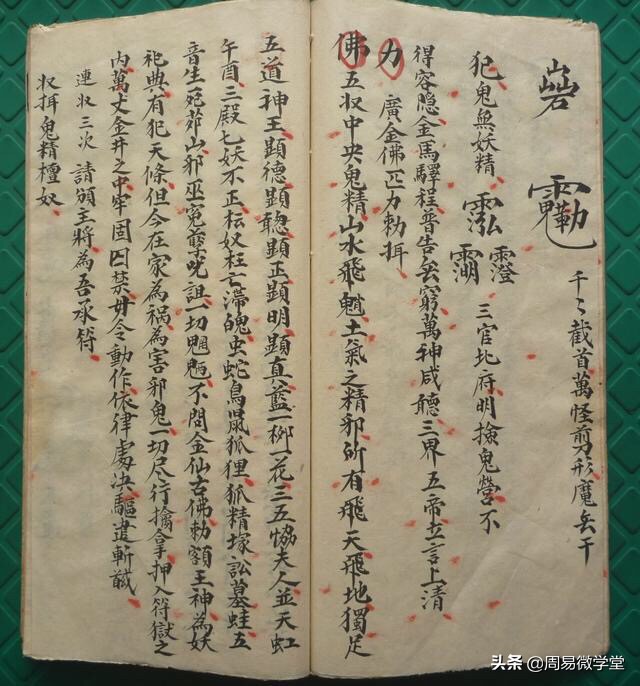 千〻截首萬怪剪形魔兵干
犯鬼無妖精
三官北府明撿鬼營不
得容隱金馬驛程普告無窮萬神咸聽三界五帝立言上清
力 廣金佛匹力勅挕
佛五収中央鬼精山水飛魈土氣之精邪所有飛天飛地獨足
五道神王顕德顕聰顕正顕明顕直藍一柳一花三五恊夫人並天虹
午酉三殿七妖不正坛奴枉亡滯魄虫蛇鳥鼠狐狸狐精塚訟墓蛙五
音生一切不問金仙古佛勅額王神為妖
祀典有犯天條但今在家為禍為害邪鬼一切尽行擒拿押入符獄之
内萬丈金井之中牢固囚禁毋令動作依律處決驅遣斬馘
連収三次 請頒主將為吾承符
収挕鬼精檀奴
头条 @周易微学堂